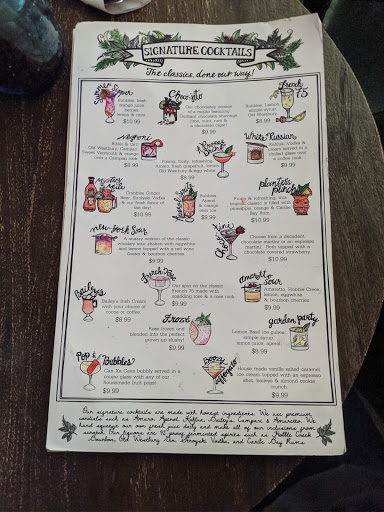 SIGNATURE COCKTAILS
The classics, done our way!
Summer Sipper
Bubbles, fresh
orange juice
berries,
lemon & rose
$10.99
Choco-jito
Our chocolatey version
of a mojito featuring
$9.99
French 75
Bubbles, Lemon,
simple syrup,
Old Westbury
$8.99
Negroni
Old Westbury, Campari
Sweet Vermouth & orange
over a Campari rock
$9.99
Freshy, fruity, refreshing.
Amaro, fresh grapefruit,
Old Westbury & egg white
$9.99
White Russian
Kahlua, Vodka &
Cream served in a
chilled glass with
a coffee rock
$9.99
Ginger
Beer, Smiryak Vodka
in our fresh flavor of
the day!
$10.99
Aperol Spritz
Bubbles
Aperol
& orange
over ice
$8.99
planter's punch
Fruity & refreshing, this
tropical classic is filled with
pineapple, orange & Caribe
Bay Rum
$10.99
new-york Sour
A smokey version of the classic
whiskey sour shaken with eggwhite
and lemon topped with a red wine
floater & bourbon cherries
$9.99
Choose from a decadent
chocolate martini or an espresso
martini. Both topped with a
chocolate covered strawberry
$10.99
Bailey's
Bailey's Irish Cream
with your choice of
cocoa or coffee
$8.99
French Rosé
Our spin on the classic
French 75 made with
sparkling rose & a rose rock
$9.99
amaretto Sour
Amaretto, Hobble Creek,
lemon, eggwhite
& bourbon cherries
$9.99
Frosé
Rose frozen and
blended into the perfect
grown up slushy!
$9.99
garden party
Lemon Basil ice cubes,
simple syrup,
lemon juice,
$8.99
Pop & Bubbles
Can Xa Cava bubbly served in a
coupe glass with any of our
housemade fruit pops!
$9.99
Boozy affogato
House made vanilla salted caramel
ice cream topped with an espresso
shot, baileys & almond cookie
crunch
$9.99
Our signature cocktails are made with honest ingredients. We use premium
cordials such as Amaro, Aperol, Kahlua, Bailey's, Campari & Amaretto. We
hand squeeze our own fresh juice daily and make all of our infusions from
scratch. Our liquors are 42 proof fermented spirits such as Hobble Creek
Bourbon, Old Westbury Gin, Smiryak Vodka, and Caribe Bay Rums.